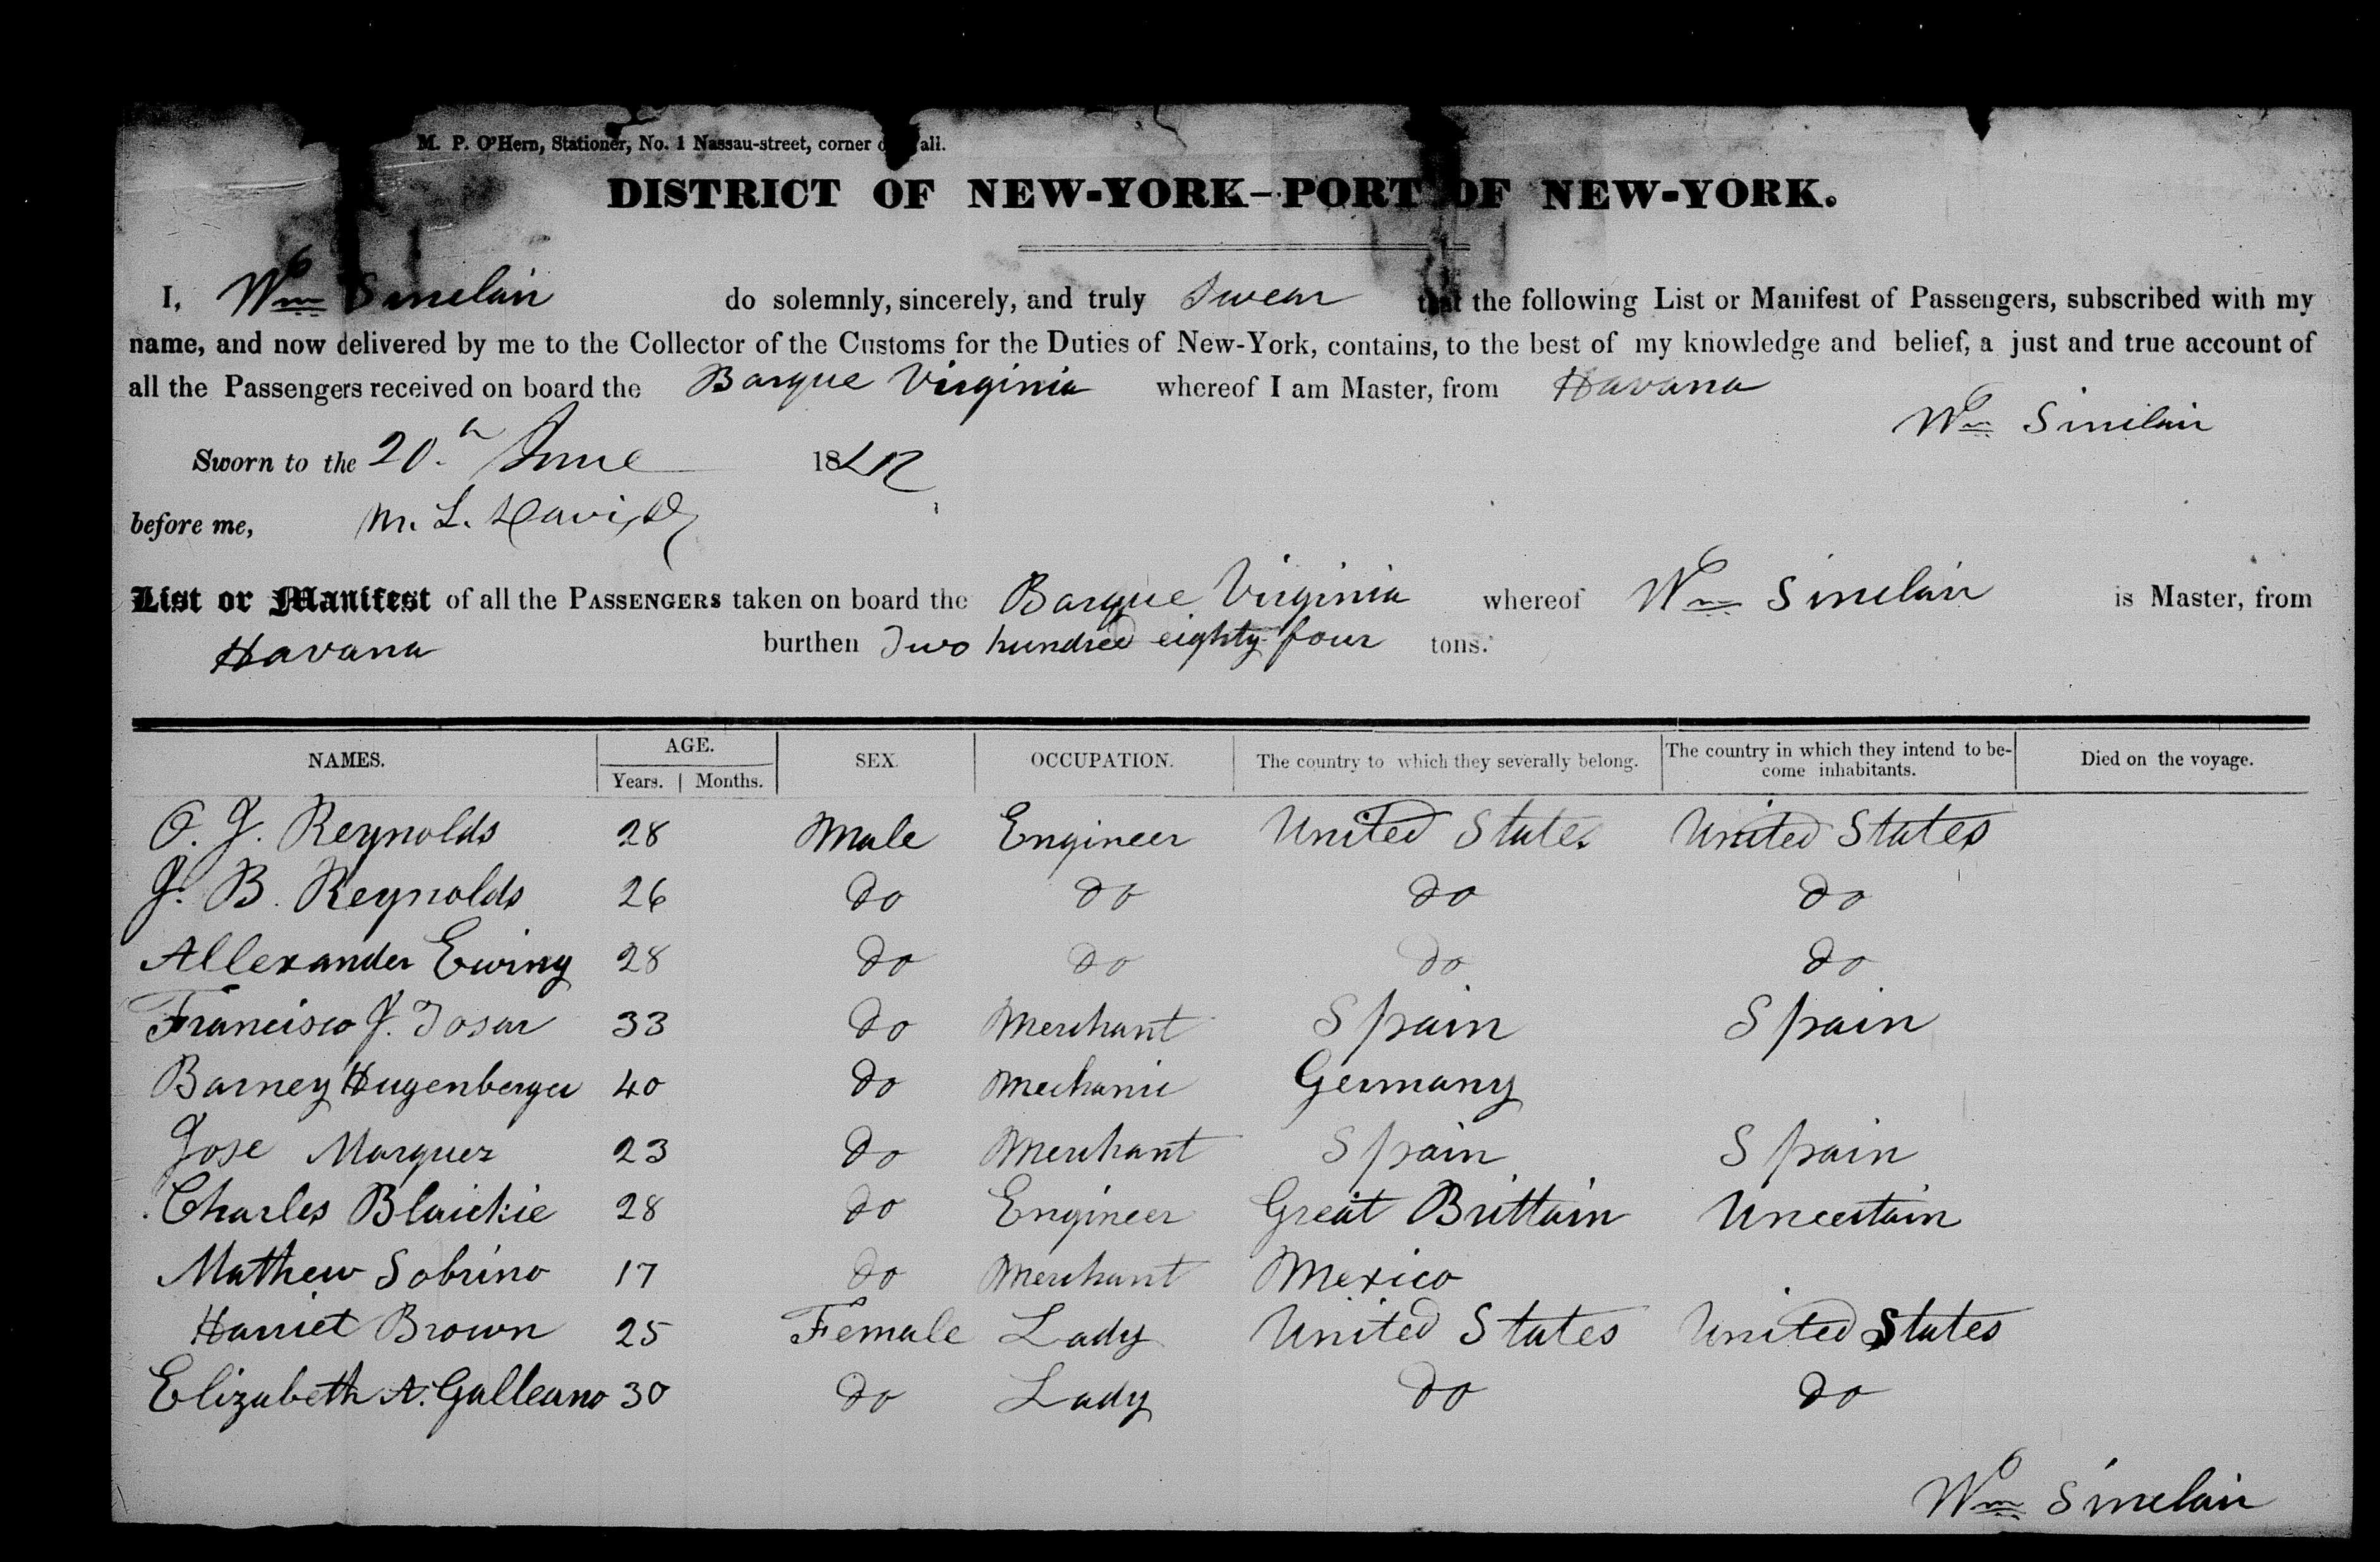 M. P. O'Hern, Stationer, No. 1 Nassau-street, corner all.
DISTRICT OF NEW-YORK-PORT OF NEW-YORK.
I, Wm Sinclair do solemnly, sincerely, and truly Swear that the following List or Manifest of Passengers, subscribed with my
name, and now delivered by me to the Collector of the Customs for the Duties of New-York, contains, to the best of my knowledge and belief, a just and true account of
all the Passengers received on board the Barque Virginia whereof I am Master, from Havana
Wm Sinclair
Sworn to the 20th June 18
before me, M. L. Davis
List or Manifest of all the PASSENGERS taken on board the Barque Virginia whereof Wm Sinclair is Master, from
Havana burthen Two hundred eighty four tons.
NAMES. AGE. Years. Months. SEX. OCCUPATION. The country to which they severally belong. The country in which they intend to become inhabitants. Died on the voyage.
O. J. Reynolds 28 Male Engineer United States United States
J. B. Reynolds 26 do do do do
Allexander Ewing 28 do do do do
Francisco J. Tosar 33 do Merchant Spain Spain
Barney Hugenberger 40 do Mechanic Germany
Jose Marquez 23 do Merchant Spain Spain
Charles Blaickie 28 do Engineer Great Brittain Uncertain
Mathew Sobrino 17 do Merchant Mexico
Harriet Brown 25 Female Lady United States United States
Elizabeth A. Galleano 30 do Lady do do
Wm Sinclair